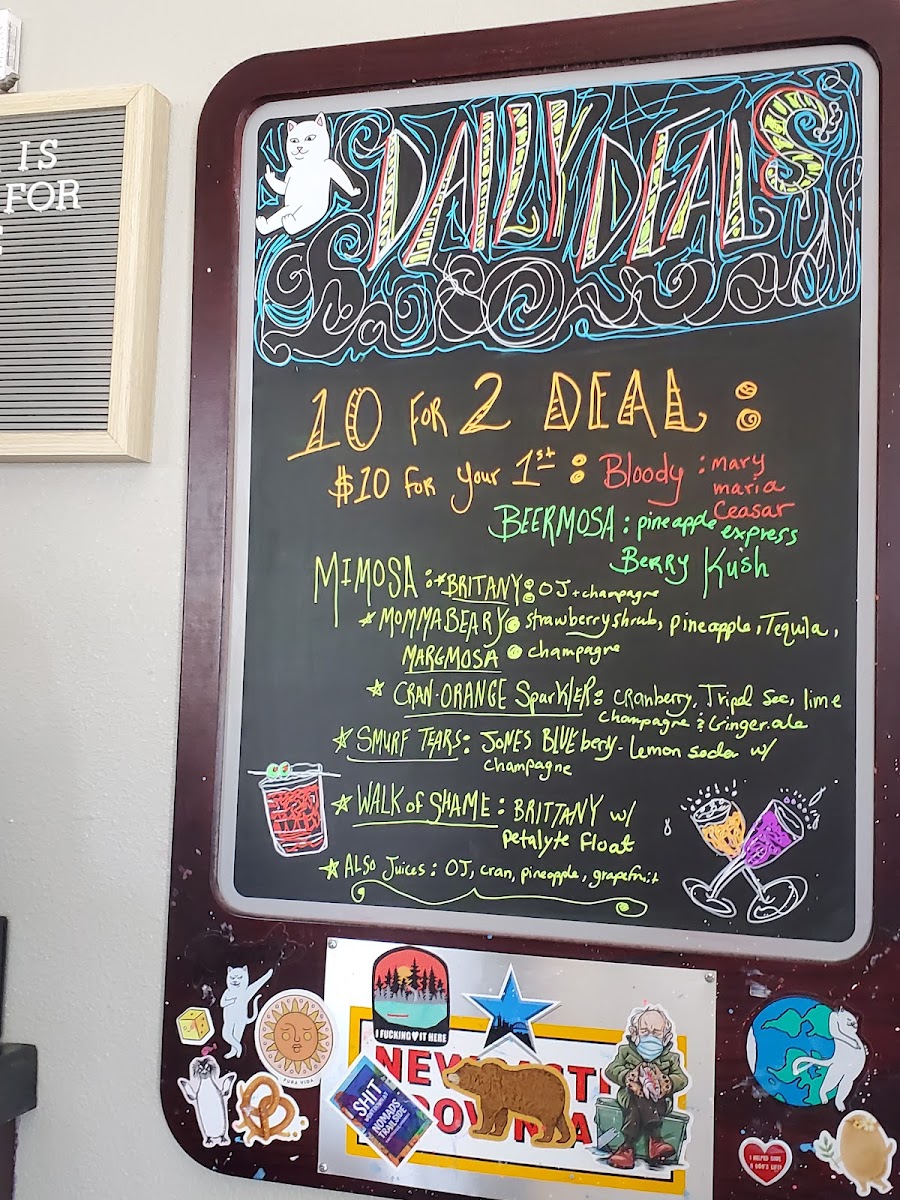 IS
FOR
DAILY DEALS
10 FOR 2 DEAL :
$10 For your 1st : Bloody : mary
maria
Ceasar
BEERMOSA : pineapple express
Berry Kush
MIMOSA : *BRITANY : OJ + champagne
* MOMMABEARY strawberry shrub, pineapple, Tequila,
MARGMOSA champagne
* CRAN-ORANGE SparklER : cranberry, Tripel Sec, lime
champagne & Ginger ale
* SMURF TEARS : JONES BLUE berry-Lemon soda w/
champagne
* WALK of SHAME : BRITTANY w/
petalyte Float
* ALSO Juices : OJ, cran, pineapple, grapefruit
I FUCKING IT HERE
PURA VIDA
NEW
SHIT
NOMADS
TRAILSIDE
I HELPED SAVE
A DOG'S LIFE!